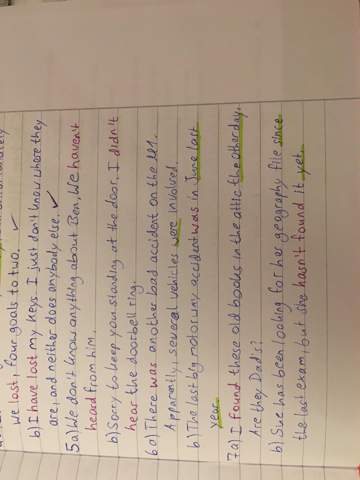 we lost, four goals to two. ✓
b) I have lost my keys. I just don't know where they
are, and neither does anybody else. ✓
5a) We don't know anything about Ben, We haven't
heard from him.
b) Sorry to keep you standing at the door. I didn't
hear the doorbell ring.
6a) There was another bad accident on the M1.
Apparently, several vehicles were involved.
b) The last big motorway accident was in June last
year.
7a) I found these old books in the attic the other day.
Are they Dad's?
b) Sue has been looking for her geography file since
the last exam, but she hasn't found it yet.